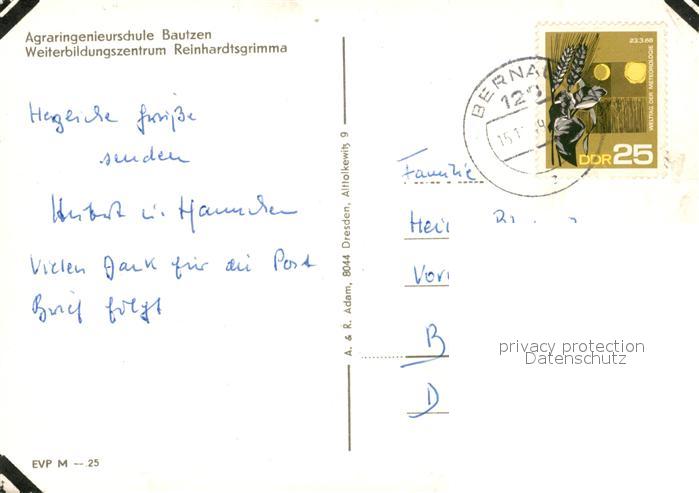 Agraringenieurschule Bautzen
Weiterbildungszentrum Reinhardtsgrimma
Herzliche Grüße
senden
Herbert u. Hannchen
Vielen Dank für die Post
Brief folgt
EVP M — 25
A. & R. Adam, 8044 Dresden, Alttolkewitz 9
BERNA
23.3.68
WELTTAG DER METEOROLOGIE
DDR 25
Familie
Hei
Vor
B
D
privacy protection
Datenschutz